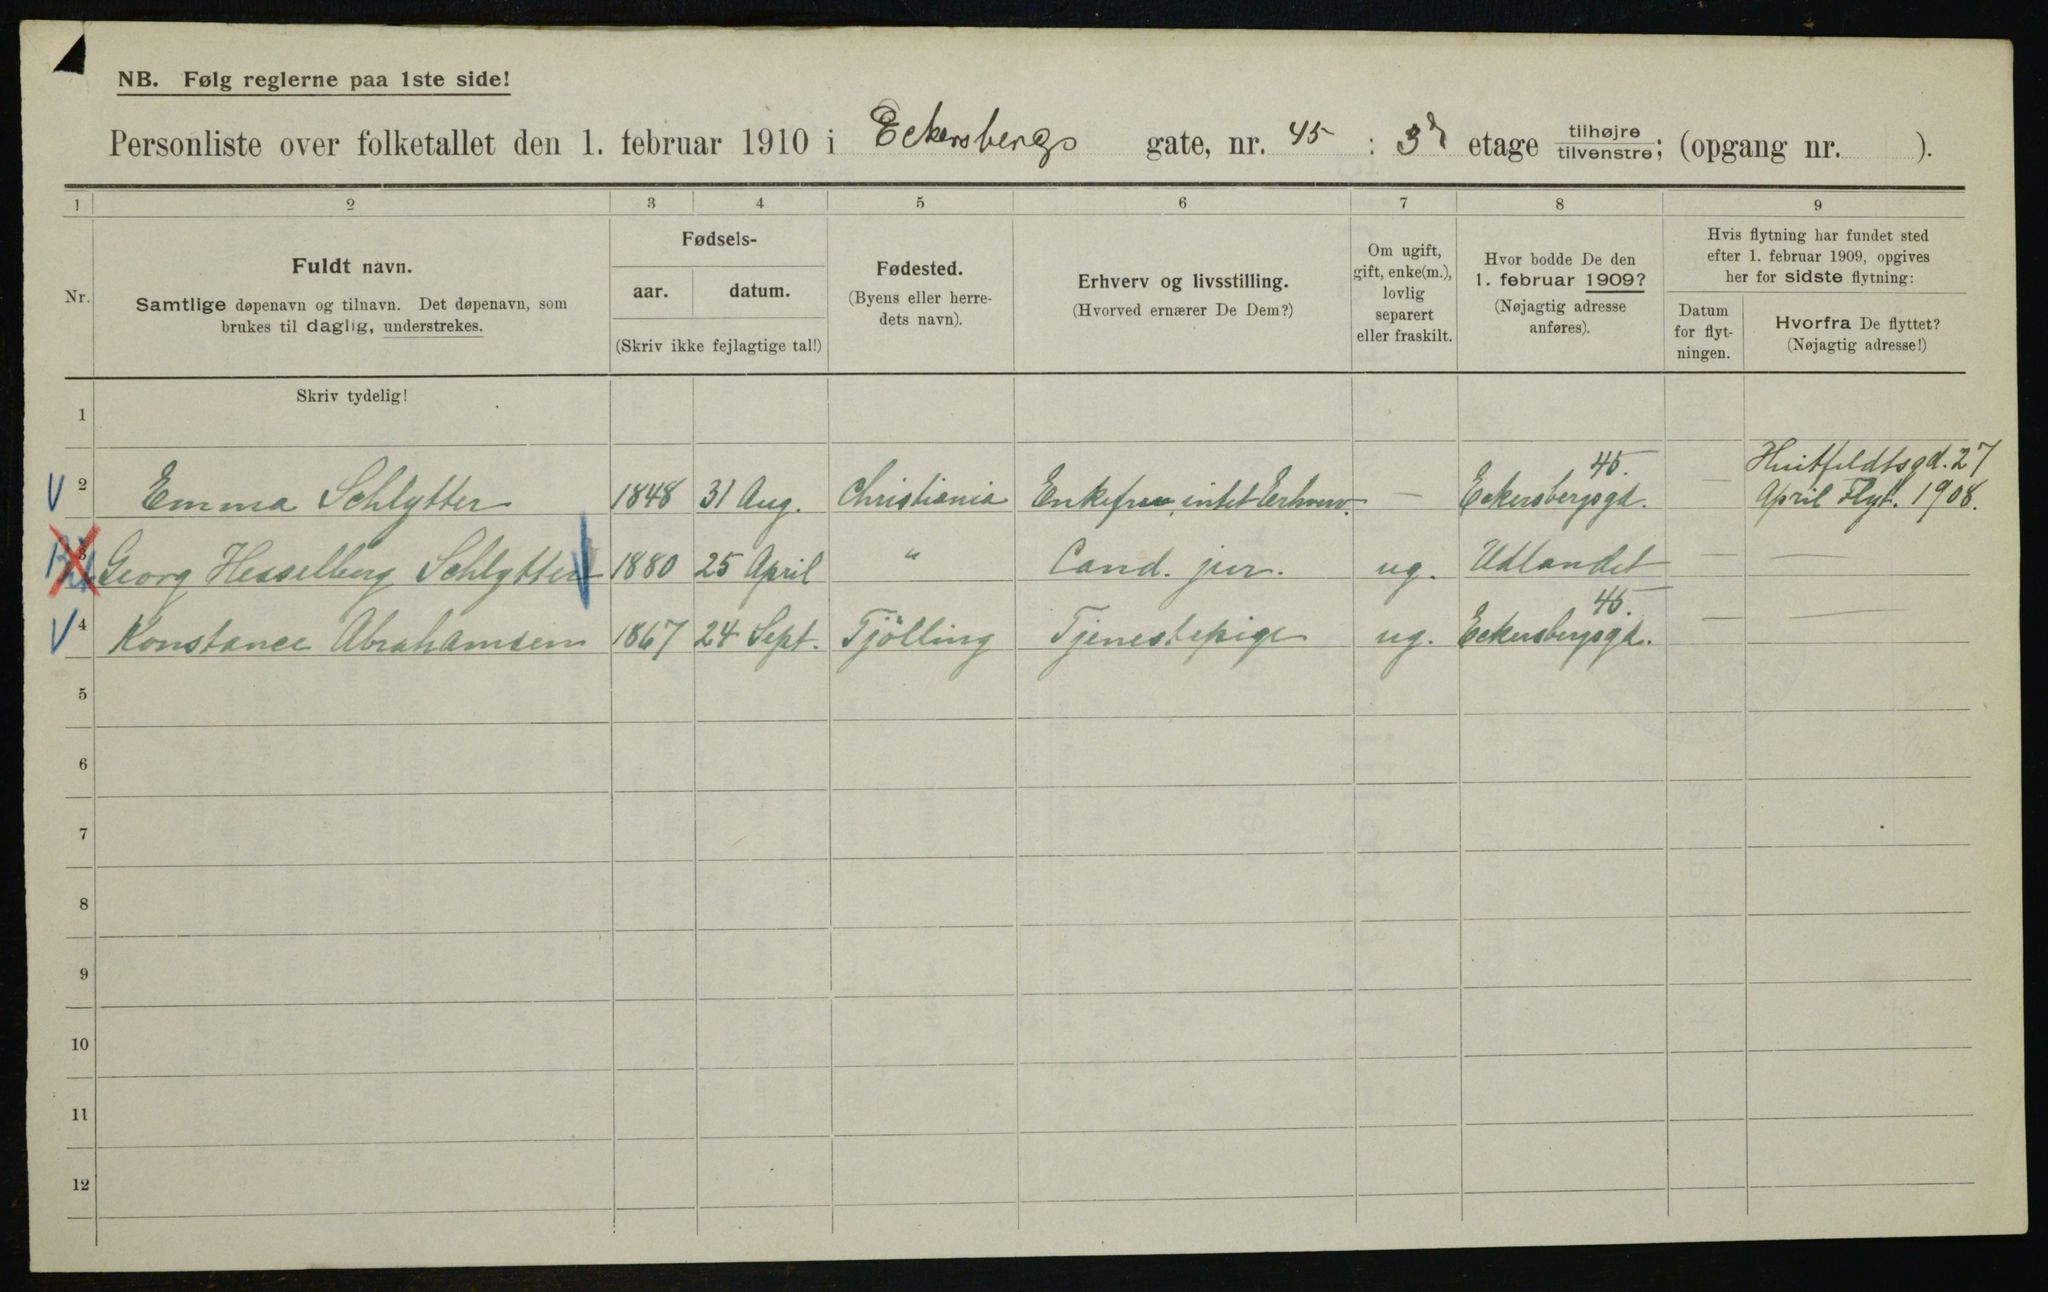 NB. Følg reglerne paa 1ste side!
Personliste over folketallet den 1. februar 1910 i Eckersbergs gate, nr. 45 : 3 etage tilhøjre tilvenstre; (opgang nr. ).
1 2 3 4 5 6 7 8 9
Nr.
Fuldt navn.
Samtlige døpenavn og tilnavn. Det døpenavn, som
brukes til daglig, understrekes.
Fødsels-
aar. datum.
(Skriv ikke fejlagtige tal!)
Fødested.
(Byens eller herre-
dets navn).
Erhverv og livsstilling.
(Hvorved ernærer De Dem?)
Om ugift,
gift, enke(m.),
lovlig
separert
eller fraskilt.
Hvor bodde De den
1. februar 1909?
(Nøjagtig adresse
anføres).
Hvis flytning har fundet sted
efter 1. februar 1909, opgives
her for sidste flytning:
Datum
for flyt-
ningen.
Hvorfra De flyttet?
(Nøjagtig adresse!)
Skriv tydelig!
1
2 Emma Schlytter 1848 31 Aug. Christiania Enkefrue, intet Erhverv. — Eckersbergsgd. 45. — Huitfeldtsgd. 27 April Flyt. 1908.
3 Georg Hesselberg Schlytter 1880 25 April " Cand. jur. ug. Udlandet — —
4 Konstance Abrahamsen 1867 24 Sept. Tjölling Tjenestepige ug. Eckersbergsgd. 45. — —
5
6
7
8
9
10
11
12